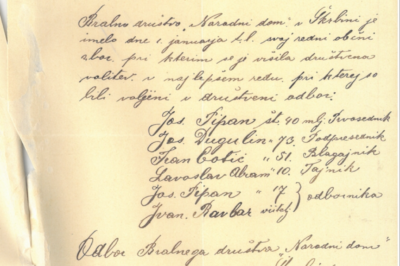 Bralno društvo "Narodni dom" v Škrbini je
imelo dne 1. januarja t.l. svoj redni občni
zbor, pri kterim se je vršila društvena
volitev, v najlepšem redu, pri kterej so
bili voljeni v društveni odbor:
Jos. Pipan št. 40 mlj. Prvosednik
Jos. Švagulin " 73. Podpresednik
Ivan Cotič " 51. Blagajnik
Lavoslav Abram " 10. Tajnik
Jos. Pipan " 17 } odbornika
Ivan Ravbar učitelj
Odbor Bralnega društva "Narodni dom"